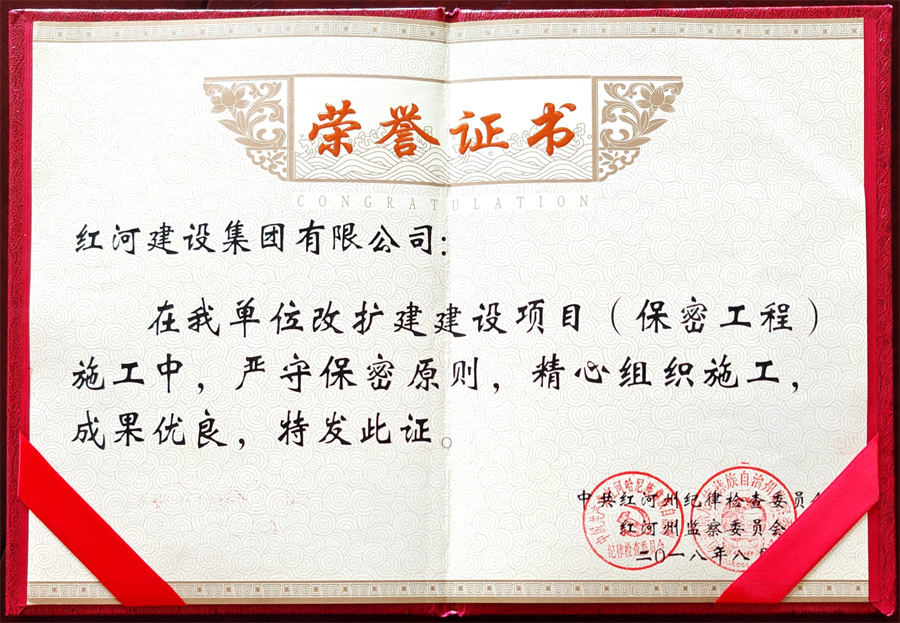 荣誉证书
CONGRATULATION
红河建设集团有限公司:
在我单位改扩建建设项目(保密工程)
施工中,严守保密原则,精心组织施工,
成果优良,特发此证。
中共红河州纪律检查委员会
红河州监察委员会
二〇一八年八月
纪律检查委员会
族自治州